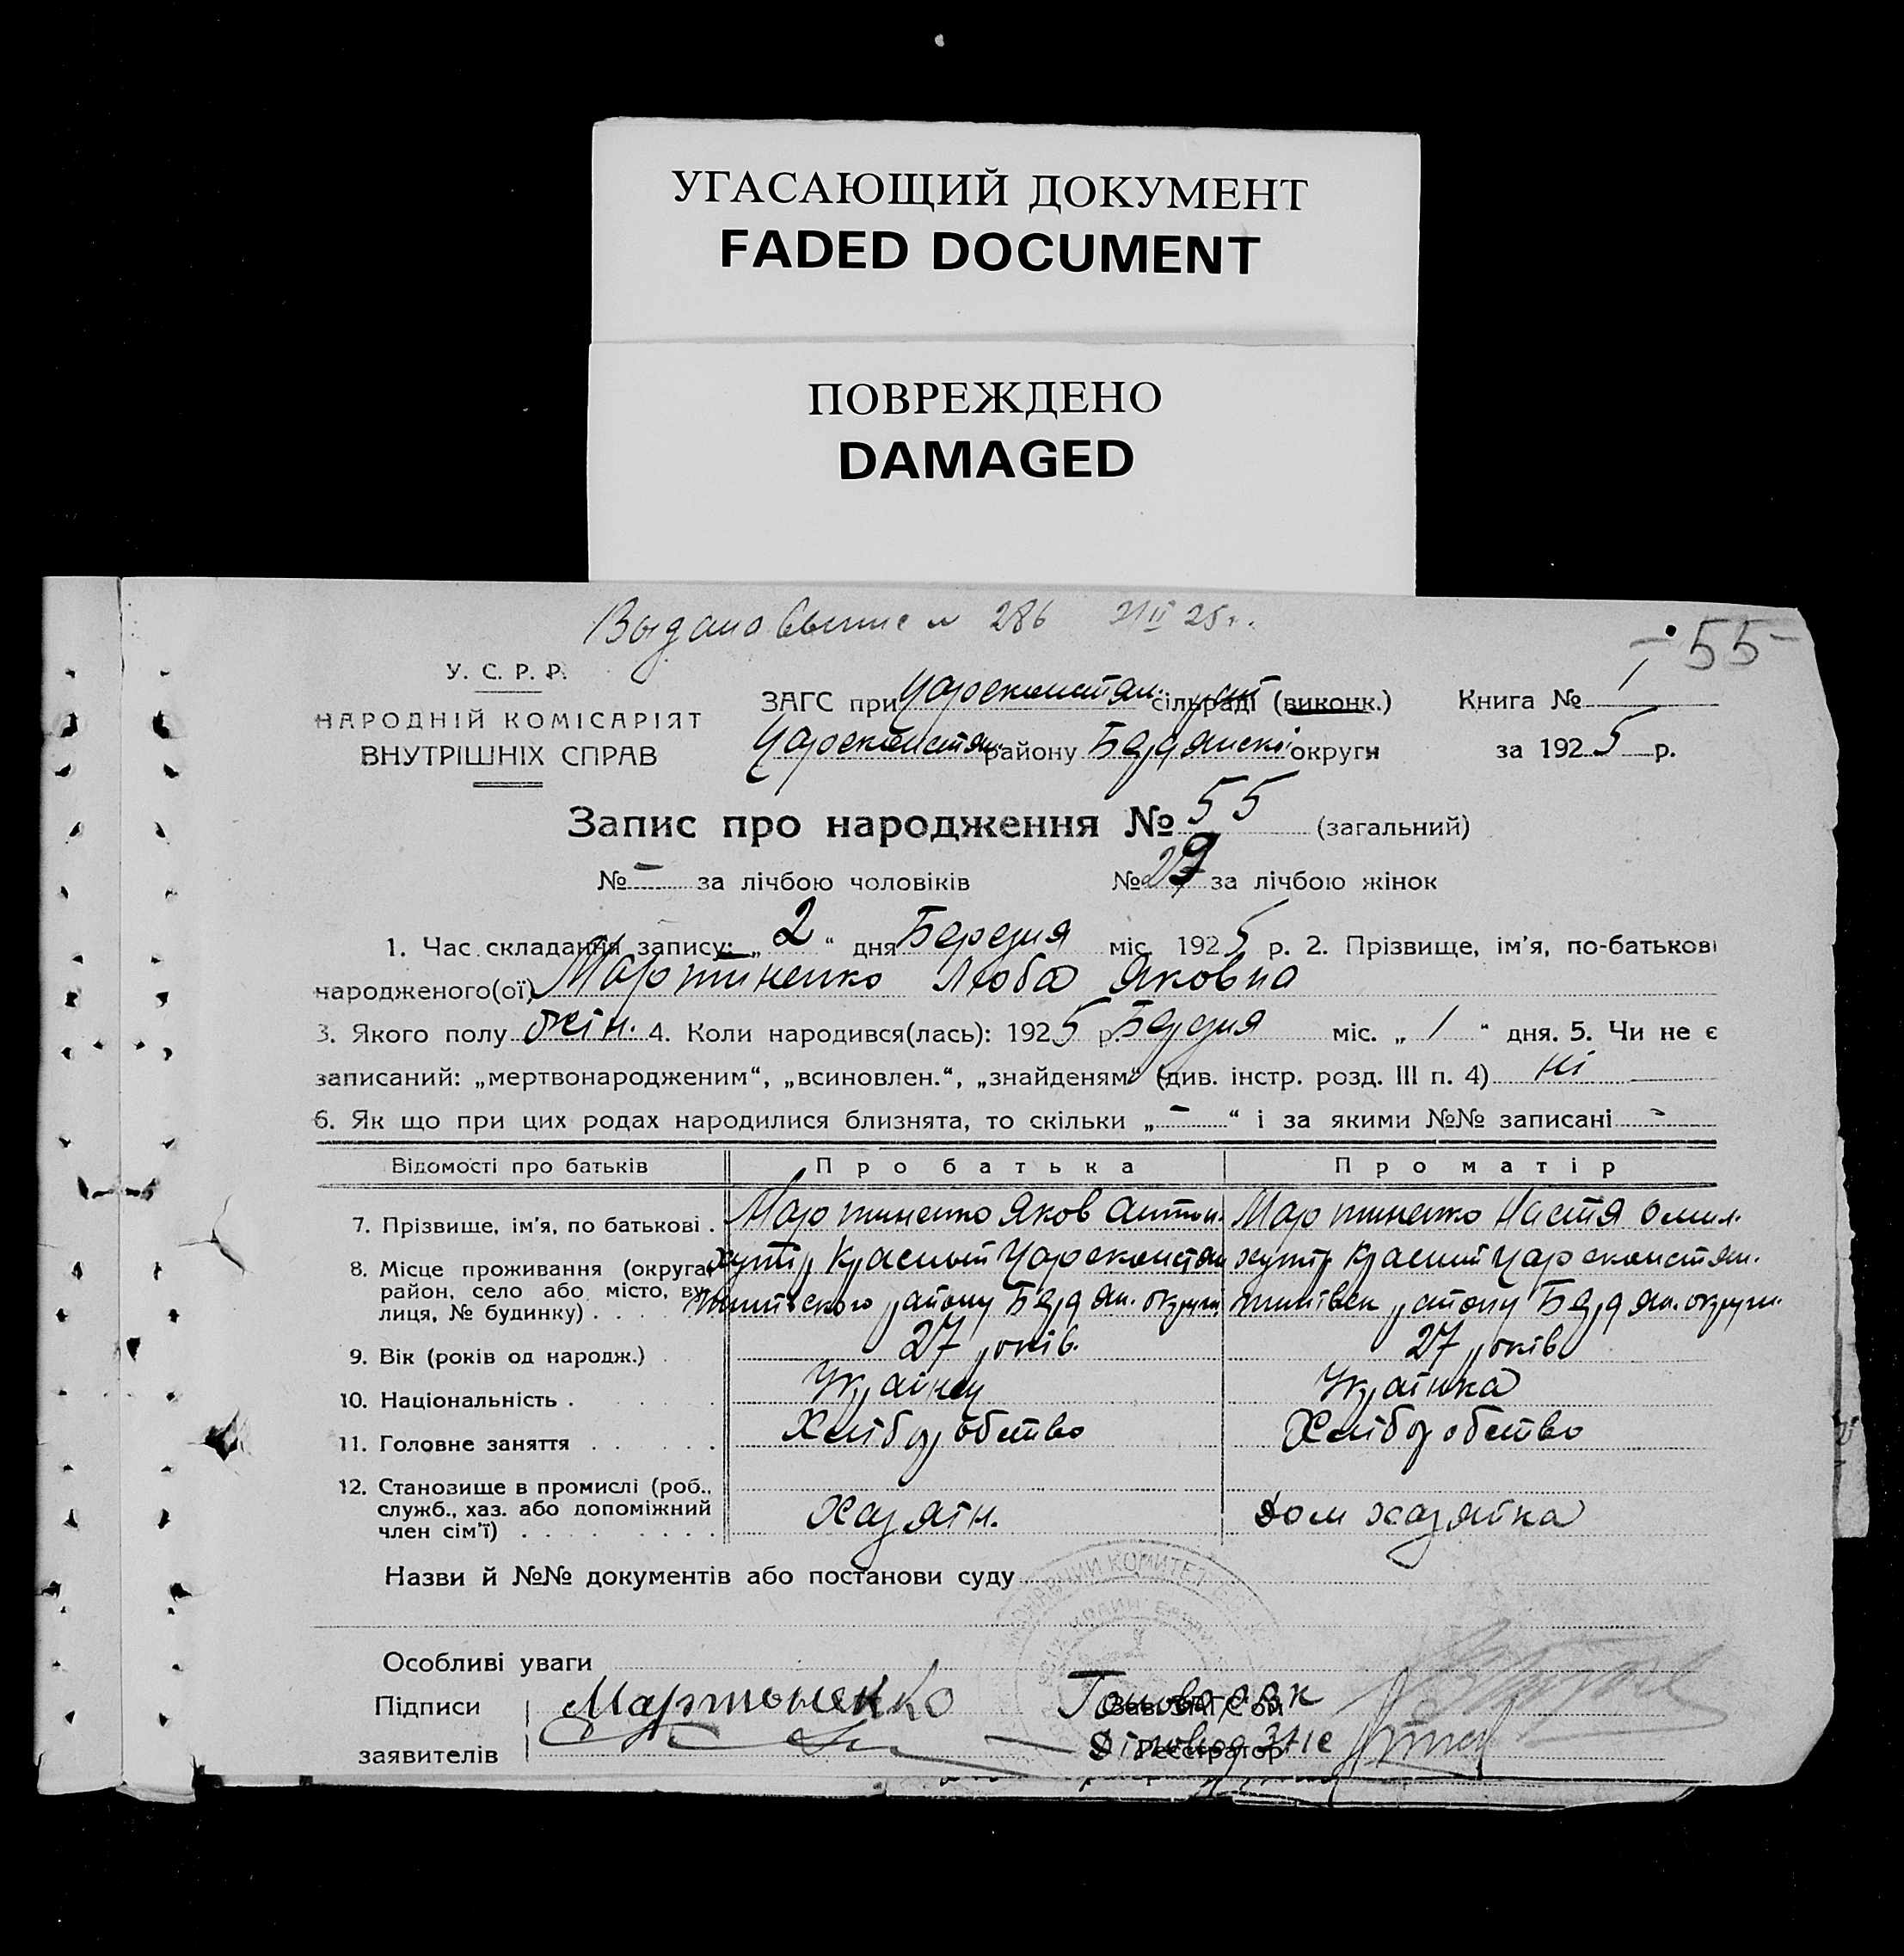 УГАСАЮЩИЙ ДОКУМЕНТ
FADED DOCUMENT
ПОВРЕЖДЕНО
DAMAGED
Выдано 286 25 г.
- 55 -
У. С. Р. Р.
НАРОДНІЙ КОМІСАРІЯТ
ВНУТРІШНІХ СПРАВ
ЗАГС при Цареконстян. сільраді (виконк.) Книга № 1
Цареконстян. району Бердянської округи за 1925 р.
Запис про народження № 55 (загальний)
№ - за лічбою чоловіків № за лічбою жінок
1. Час складання запису: „2“ дня Березня міс. 1925 р. 2. Прізвище, ім'я, по-батькові
народженого(ої) Мартиненко Люба Яковна
3. Якого полу жін. 4. Коли народився(лась): 1925 р. Березня міс. „1“ дня. 5. Чи не є
записаний: „мертвонародженим“, „всиновлен.“, „знайденям“ (див. інстр. розд. III п. 4) ні
6. Як що при цих родах народилися близнята, то скільки „-“ і за якими №№ записані -
Відомості про батьків Про батька Про матір
7. Прізвище, ім'я, по батькові . Мартиненко Яков Антон. Мартиненко Настя Омел.
8. Місце проживання (округа, хутір Красный Цареконстян хутір Красний Цареконстян.
район, село або місто, вулиця, № будинку) . . . тинівского району Бердян. округи тинівск району Бердян. округи.
9. Вік (років од народж.) . 27 років. 27 років
10. Національність . . . . Українец Українка
11. Головне заняття . . . . Хліборобство Хліборобство
12. Становище в промислі (роб.,
служб., хаз. або допоміжний Хазяїн. Дом хазяйка
член сім'ї) . . . . .
Назви й №№ документів або постанови суду
Особливі уваги
Підписи Мартыненко Голова рвк
заявителів Діловод ЗАГС